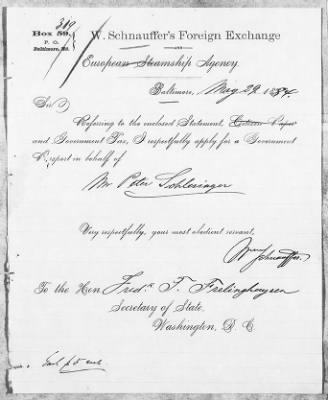 319
Box 59,
P. O.
Baltimore, Md.
W. Schnauffer's Foreign Exchange
and
European Steamship Agency.
Baltimore, May 29 1884.
Sir
Referring to the enclosed Statement, Citizen Paper
and Government Tax, I respectfully apply for a Government
Passport in behalf of
Mr Peter Schlesinger
Very respectfully, your most obedient servant,
Wm Schnauffer.
To the Hon. Fredk T. Frelinghuysen
Secretary of State.
Washington, D. C.